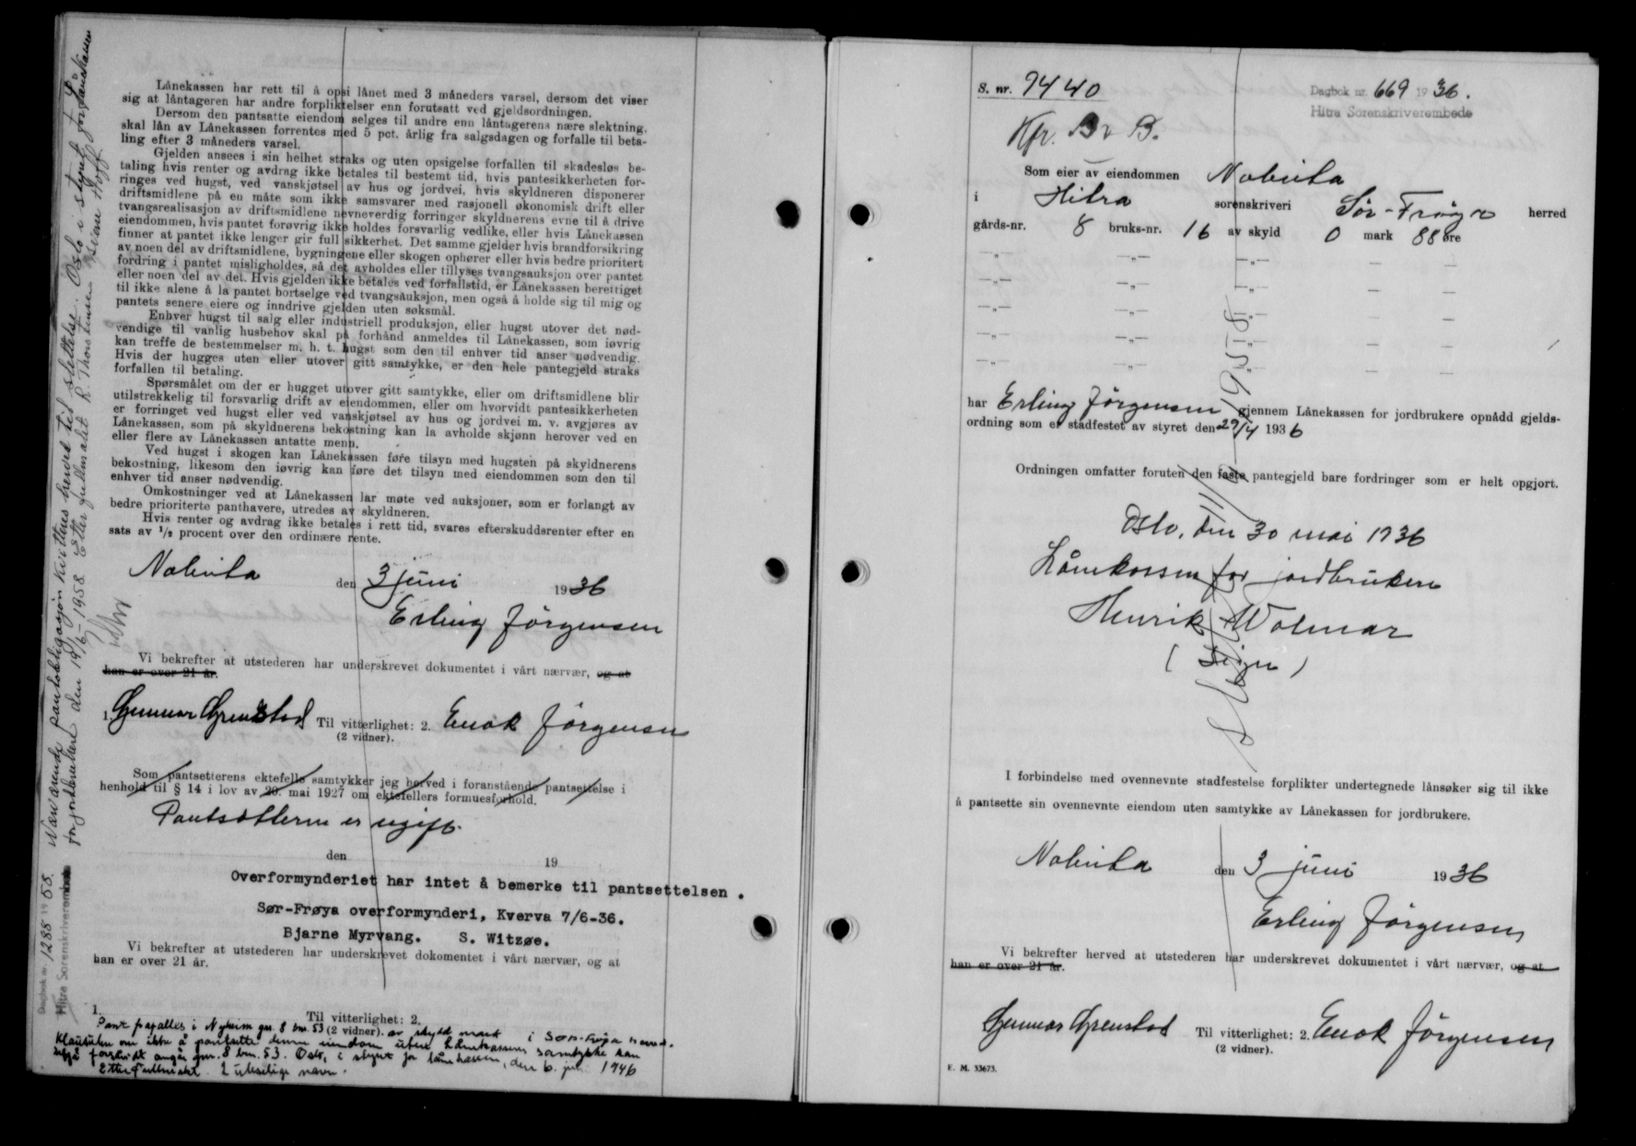 Lånekassen har rett til å opsi lånet med 3 måneders varsel, dersom det viser
sig at låntageren har andre forpliktelser enn forutsatt ved gjeldsordningen.
Dersom den pantsatte eiendom selges til andre enn låntagerens nære slektning,
skal lån av Lånekassen forrentes med 5 pct. årlig fra salgsdagen og forfalle til beta-
ling efter 3 måneders varsel.
Gjelden ansees i sin helhet straks og uten opsigelse forfallen til skadesløs be-
taling hvis renter og avdrag ikke betales til bestemt tid, hvis pantesikkerheten for-
ringes ved hugst, ved vanskjøtsel av hus og jordvei, hvis skyldneren disponerer
driftsmidlene på en måte som ikke samsvarer med rasjonell økonomisk drift eller
tvangsrealisasjon av driftsmidlene nevneverdig forringer skyldnerens evne til å drive
eiendommen, hvis pantet forøvrig ikke holdes forsvarlig vedlike, eller hvis Lånekassen
finner at pantet ikke lenger gir full sikkerhet. Det samme gjelder hvis brandforsikring
av noen del av driftsmidlene, bygningene eller skogen ophører eller hvis bedre prioritert
fordring i pantet misligholdes, så det avholdes eller tillyses tvangsauksjon over pantet
eller noen del av det. Hvis gjelden ikke betales ved forfallstid, er Lånekassen berettiget
til ikke alene å la pantet bortselge ved tvangsauksjon, men også å holde sig til mig og
pantets senere eiere og inndrive gjelden uten søksmål.
Enhver hugst til salg eller industriell produksjon, eller hugst utover det nød-
vendige til vanlig husbehov skal på forhånd anmeldes til Lånekassen, som iøvrig
kan treffe de bestemmelser m. h. t. hugst som den til enhver tid anser nødvendig.
Hvis der hugges uten eller utover gitt samtykke, er den hele pantegjeld straks
forfallen til betaling.
Spørsmålet om der er hugget utover gitt samtykke, eller om driftsmidlene blir
utilstrekkelig til forsvarlig drift av eiendommen, eller om hvorvidt pantesikkerheten
er forringet ved hugst eller ved vanskjøtsel av hus og jordvei m. v. avgjøres av
Lånekassen, som på skyldnerens bekostning kan la avholde skjønn herover ved en
eller flere av Lånekassen antatte menn.
Ved hugst i skogen kan Lånekassen føre tilsyn med hugsten på skyldnerens
bekostning, likesom den iøvrig kan føre det tilsyn med eiendommen som den til
enhver tid anser nødvendig.
Omkostninger ved at Lånekassen lar møte ved auksjoner, som er forlangt av
bedre prioriterte panthavere, utredes av skyldneren.
Hvis renter og avdrag ikke betales i rett tid, svares efterskuddsrenter efter en
sats av 1/2 procent over den ordinære rente.
Nabeita den 3 juni 1936
Erling Jörgensen
Vi bekrefter at utstederen har underskrevet dokumentet i vårt nærvær, og at
han er over 21 år.
1. Gunnar Grenstad Til vitterlighet: 2. Enok Jörgensen
(2 vidner).
Som pantsetterens ektefelle samtykker jeg herved i foranstående pantsettelse i
henhold til § 14 i lov av 20. mai 1927 om ektefellers formuesforhold.
Pantsetteren er ugift.
den 19
Overformynderiet har intet å bemerke til pantsettelsen.
Sør-Frøya overformynderi, Kverva 7/6-36.
Bjarne Myrvang. S. Witzøe.
Vi bekrefter at utstederen har underskrevet dokomentet i vårt nærvær, og at
han er over 21 år.
1. Til vitterlighet: 2.
(2 vidner).
Pant frafalles i Nyheim gnr. 8 bnr. 53 av skyld mark i Sør-Frøya herred.
Klausulen om ikke å pantsette denne eiendom uten Lånekassens samtykke kan
forsåvidt angår gnr. 8 bnr. 53. Oslo, i styret for lånekassen, den 6. juli 1946
Etter fullmakt. 2 uleselige navn.
Dagbok nr. 1288 1958.
Hitra Sorenskriverembede
Nærværende pantobligasjon kvitteres herved til slettelse. Oslo i styret for Lånekassen
for jordbrukere den 19/6-1958 Etter fullmakt R. Thorstensen
S. nr. 7440
Dagbok nr. 669 1936.
Hitra Sorenskriverembede
Kfr. Br B.
Som eier av eiendommen Nabeita
i Hitra sorenskriveri Sör-Fröya herred
gårds-nr. 8 bruks-nr. 16 av skyld 0 mark 88 øre
har Erling Jörgensen gjennem Lånekassen for jordbrukere opnådd gjelds-
ordning som er stadfestet av styret den 29/4 1936
Ordningen omfatter foruten den faste pantegjeld bare fordringer som er helt opgjort.
Oslo, den 30 mai 1936
Lånekassen for jordbrukere
Henrik Wolmar
( sign )
I forbindelse med ovennevnte stadfestelse forplikter undertegnede lånsøker sig til ikke
å pantsette sin ovennevnte eiendom uten samtykke av Lånekassen for jordbrukere.
Nabeita den 3 juni 1936
Erling Jörgensen
Vi bekrefter herved at utstederen har underskrevet dokumentet i vårt nærvær, og at
han er over 21 år.
Gunnar Grenstad Til vitterlighet: 2. Enok Jörgensen
(2 vidner).
E. M. 33673.